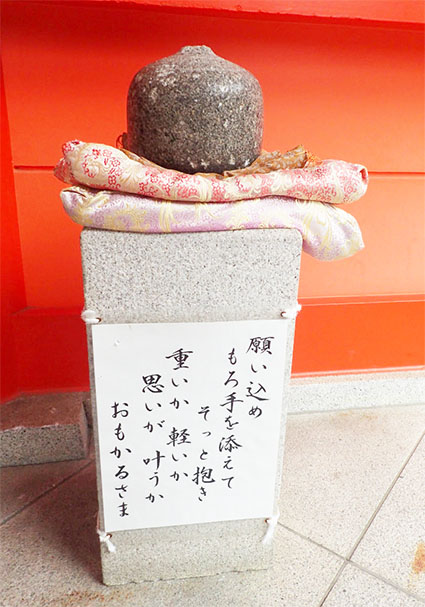 願い込め
もろ手を添えて
そっと抱き
重いか 軽いか
思いが 叶うか
おもかるさま